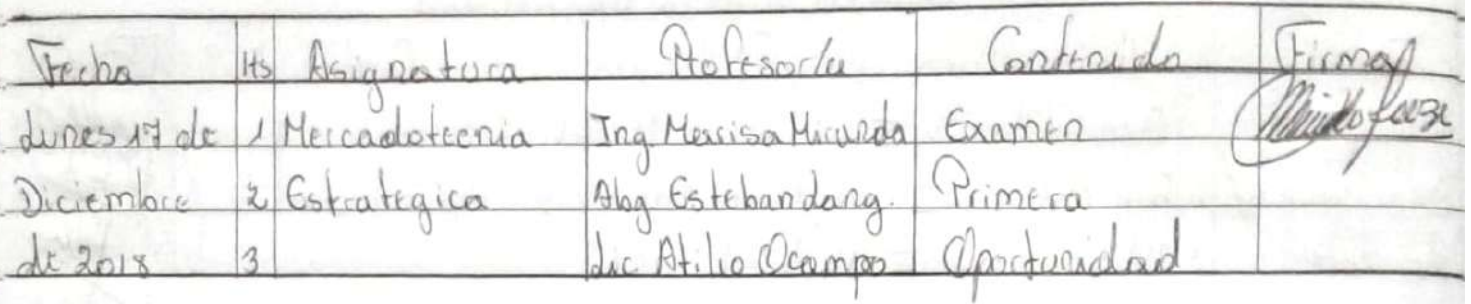 Fecha Hs Asignatura Profesor/a Contenido Firma
Lunes 17 de 1 Mercadotecnia Ing Marisa Miranda Examen
Diciembre 2 Estrategica Abg Esteban dang. Primera
de 2018 3 Lic Atilio Ocampo Oportunidad